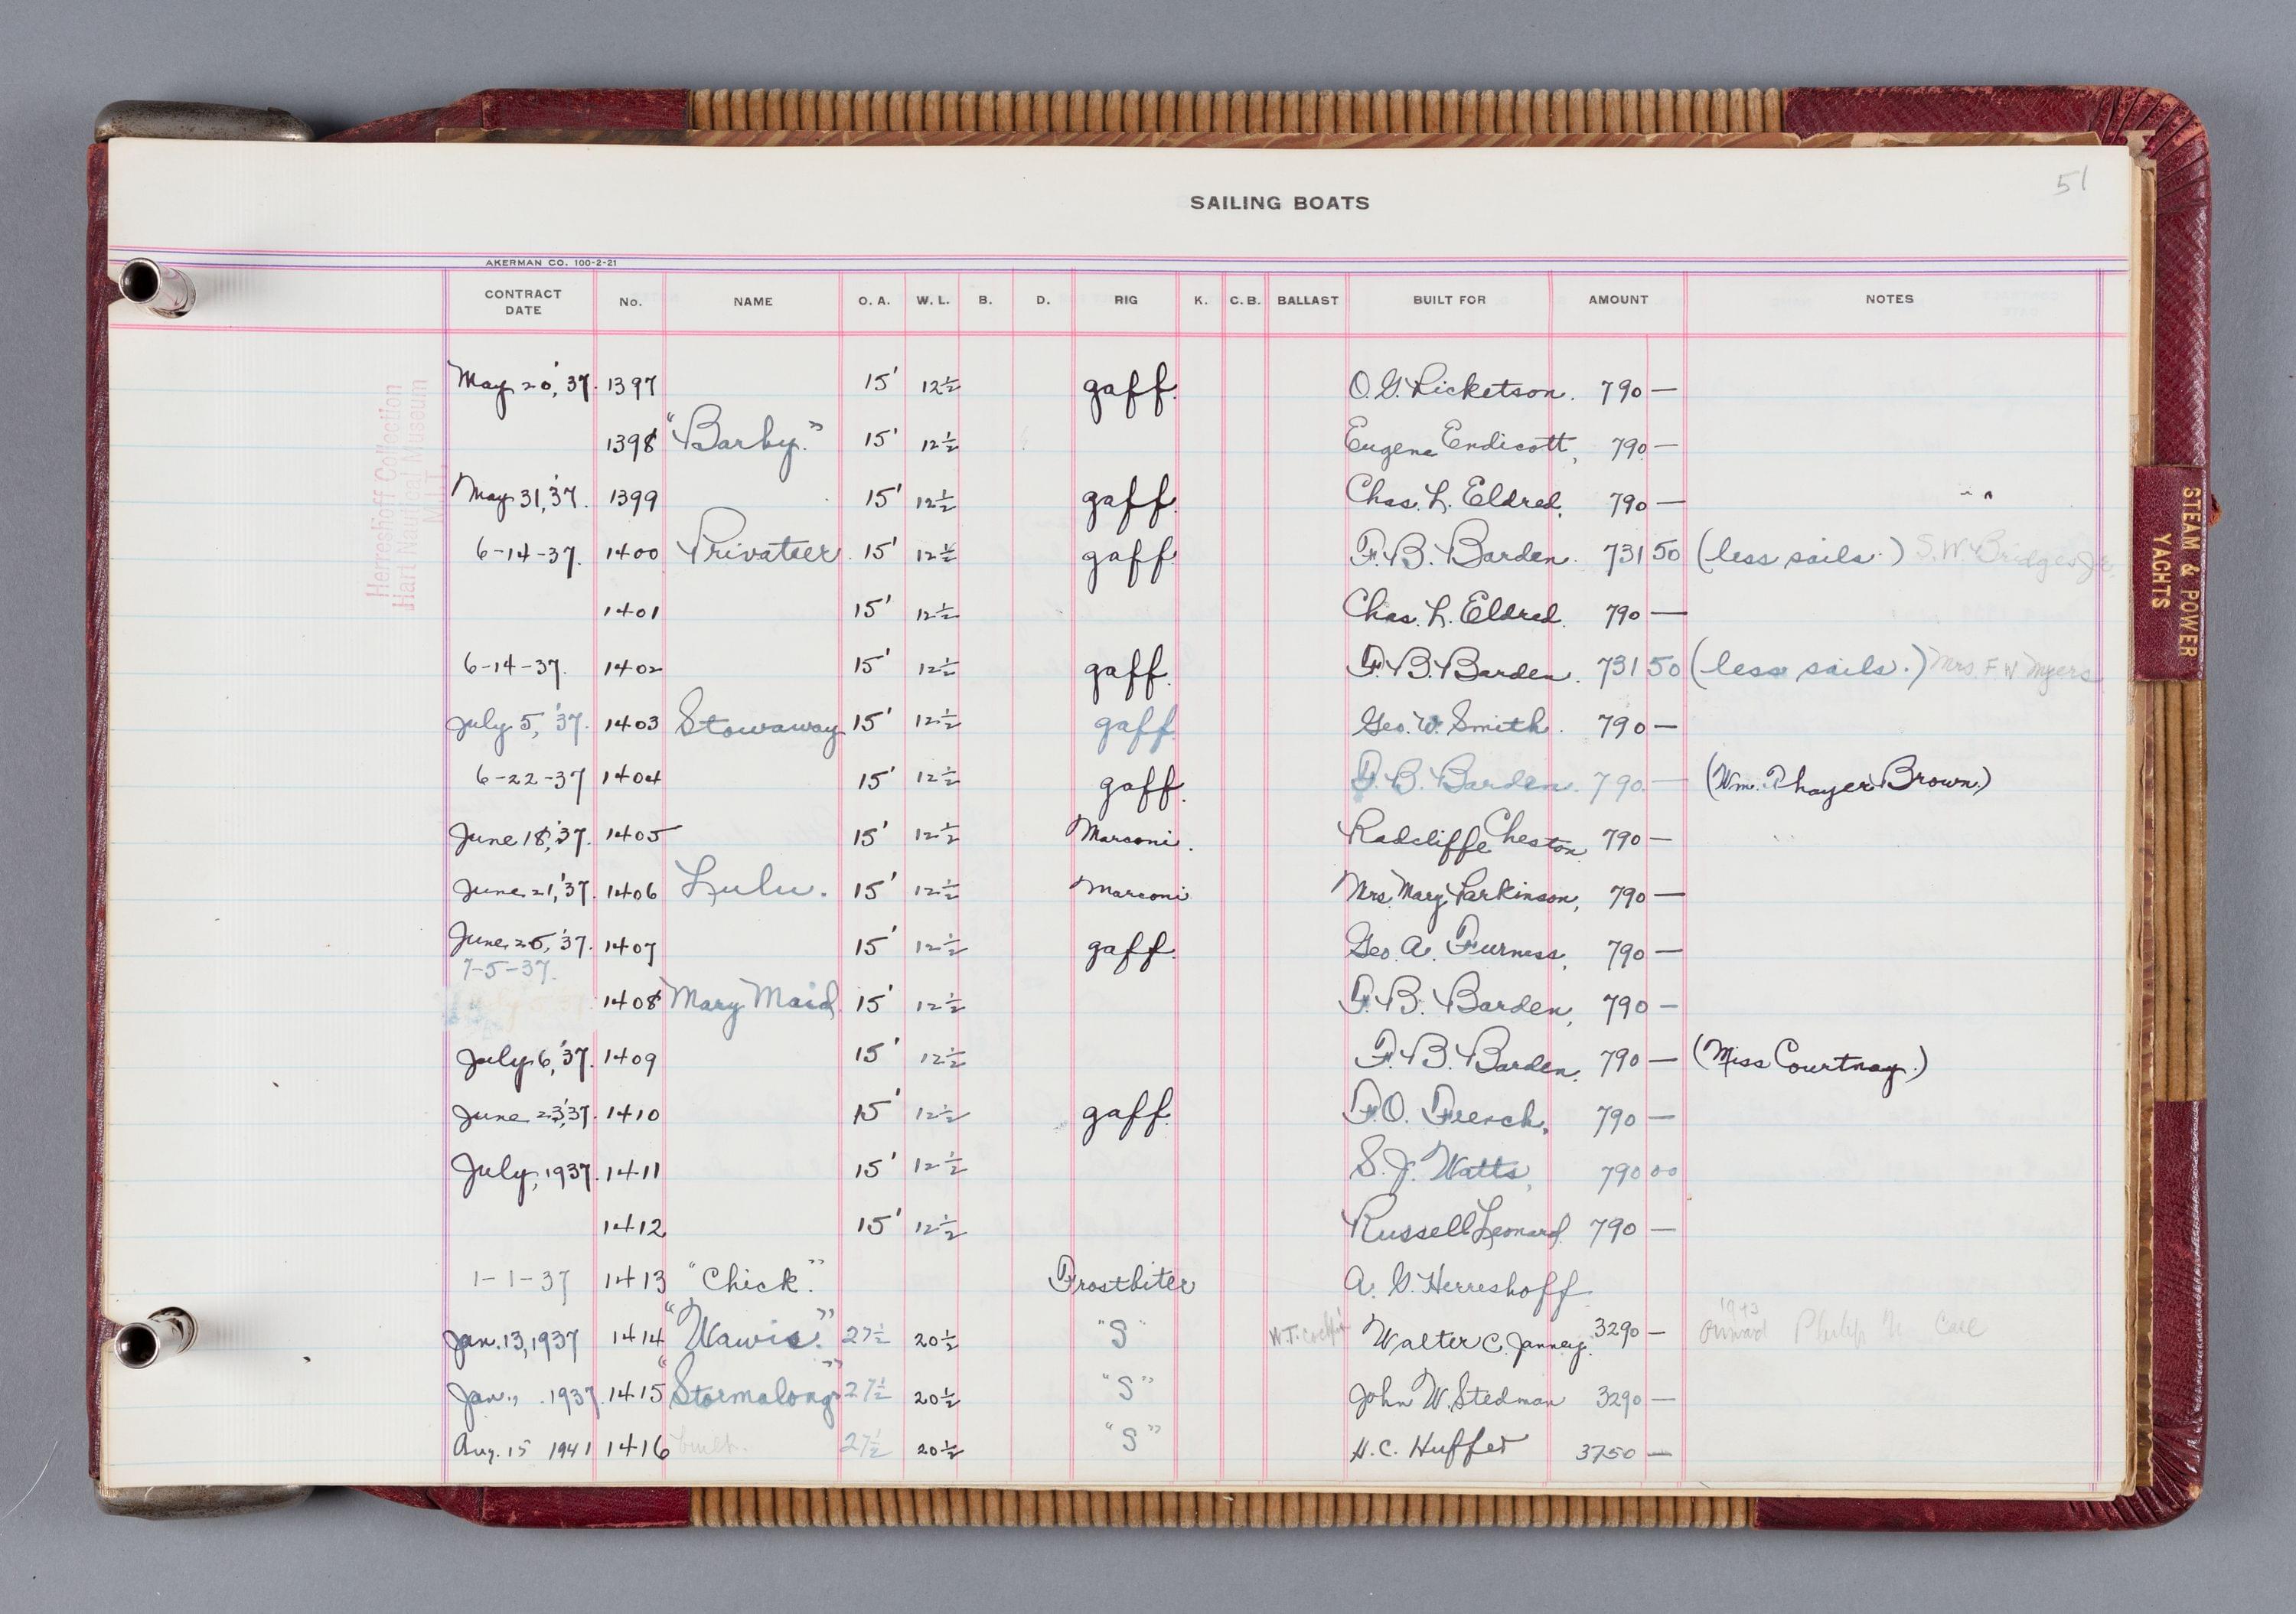 51
SAILING BOATS
AKERMAN CO. 100-2-21
CONTRACT DATE No. NAME O. A. W. L. B. D. RIG K. C. B. BALLAST BUILT FOR AMOUNT NOTES
May 20, '37. 1397 15' 12½ gaff. O. G. Ricketson. 790 —
1398 "Barby." 15' 12½ Eugene Endicott, 790 —
May 31, '37. 1399 15' 12½ gaff. Chas. L. Eldred, 790 —
6-14-37. 1400 Privateer. 15' 12½ gaff F. B. Barden. 731 50 (less sails.) S. W. Bridges Jr.
1401 15' 12½ Chas. L. Eldred. 790 —
6-14-37. 1402 15' 12½ gaff. F. B. Barden. 731 50 (less sails.) Mrs. F W Myers
July 5, '37. 1403 Stowaway 15' 12½ gaff. Geo. W. Smith. 790 —
6-22-37 1404 15' 12½ gaff. F. B. Barden. 790. — (Wm. Thayer Brown.)
June 18, '37. 1405 15' 12½ Marconi. Radcliffe Cheston 790 —
June 21, '37. 1406 Lulu. 15' 12½ Marconi Mrs. Mary Parkinson, 790 —
June 25, '37. 1407 15' 12½ gaff. Geo. A. Furness, 790 —
7-5-37.
1408 Mary Maid 15' 12½ F. B. Barden, 790 —
July 6, '37. 1409 15' 12½ F. B. Barden, 790 — (Miss Courtnay.)
June 23, '37. 1410 15' 12½ gaff. F. O. French, 790 —
July, 1937. 1411 15' 12½ S. J. Watts, 790 00
1412 15' 12½ Russell Leonard 790 —
1-1-37 1413 "Chick." Frostbiter A. G. Herreshoff
Jan. 13, 1937 1414 "Wawis." 27½ 20½ "S" W.T. cockpit Walter C. Janney. 3290 — 1943 Philip N Case
Jan., 1937. 1415 "Stormalong" 27½ 20½ "S" John W. Stedman 3290 —
Aug. 15 1941 1416 built. 27½ 20½ "S" H. C. Huffer 3750 —
Herreshoff Collection
Hart Nautical Museum
M.I.T.
STEAM & POWER
YACHTS